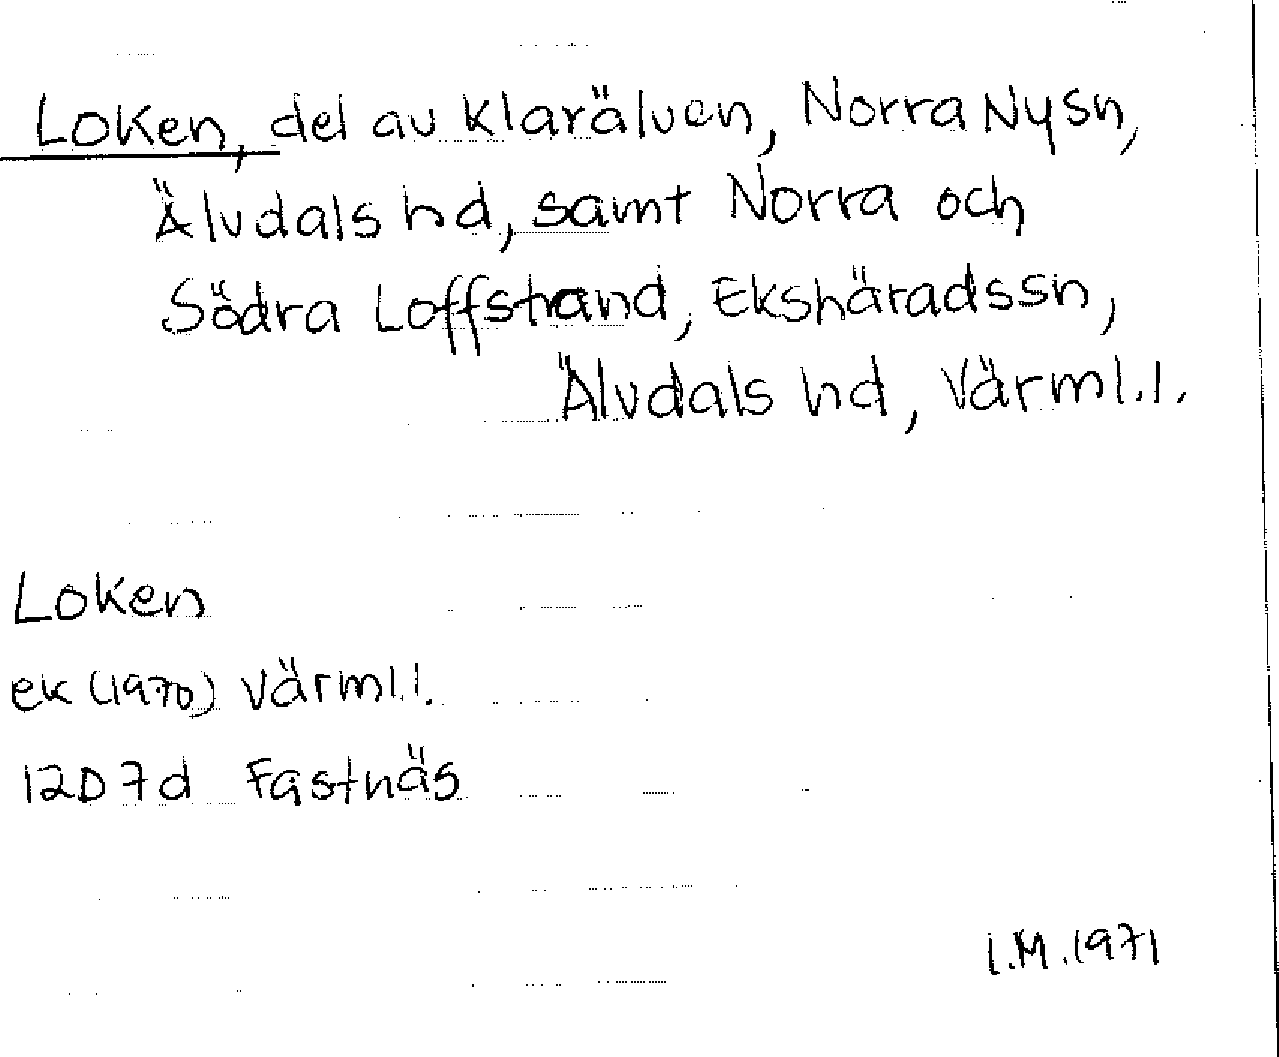 Loken, del av Klarälven, Norra Ny sn,
Älvdals hd, samt Norra och
Södra Loffstrand, Ekshärads sn,
Älvdals hd, Värml.l.
Loken
ek (1970) Värml.l.
12D 7d Fastnäs
I.M.1971